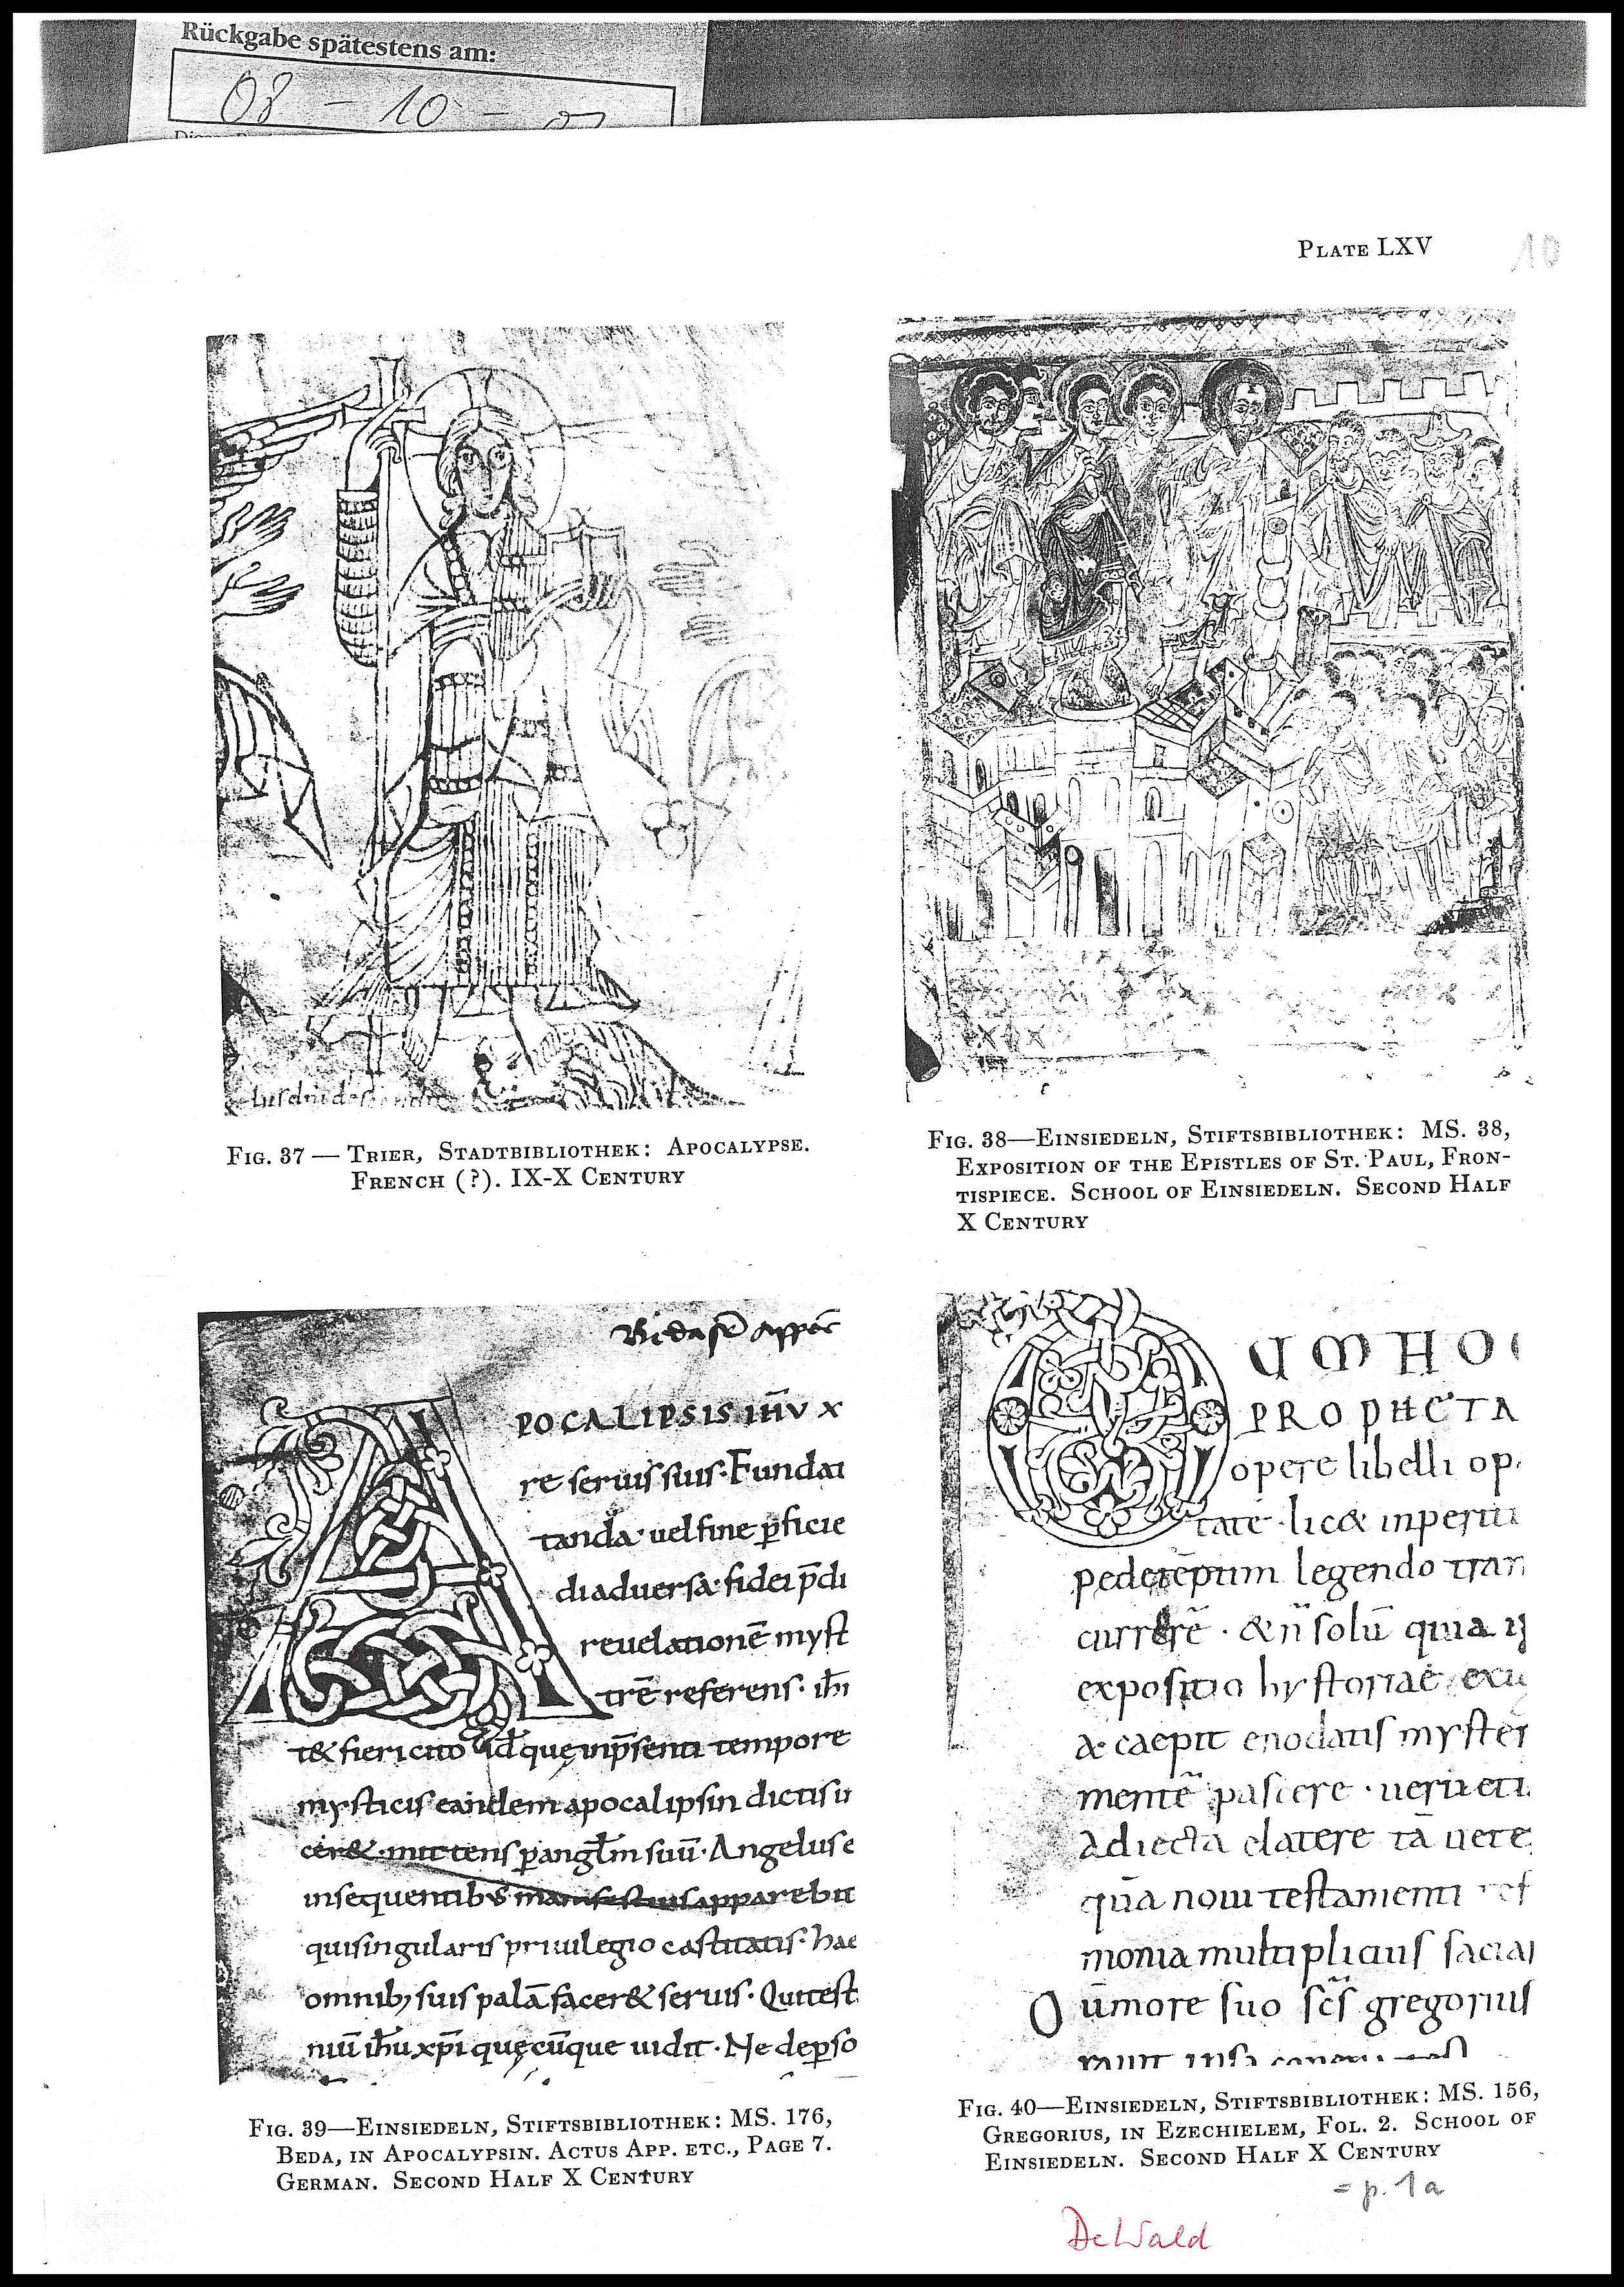 Rückgabe spätestens am:
08 - 10 -
PLATE LXV
10
FIG. 37 — TRIER, STADTBIBLIOTHEK: APOCALYPSE.
FRENCH (?). IX-X CENTURY
FIG. 38—EINSIEDELN, STIFTSBIBLIOTHEK: MS. 38,
EXPOSITION OF THE EPISTLES OF ST. PAUL, FRON-
TISPIECE. SCHOOL OF EINSIEDELN. SECOND HALF
X CENTURY
POCALIPSIS IHV X
re seruis suis · Fundai
tanda · uel fine p̄ficie
di aduersa · fidei p̄di
reuelationē myst
trē referens · ihī
t& fieri cito id quę inp̄senti tempore
mysticis eandem apocalipsin dictis u
cer& · mittens p̄ angl̄m suū · Angelus e
insequentibus manifestius apparebit
qui singularis priuilegio castitatis · hae
omnib; suis palā facer& seruis · Qui test
niū ih̄u xp̄i quęcūque uidit · Ne de p̄so
FIG. 39—EINSIEDELN, STIFTSBIBLIOTHEK: MS. 176,
BEDA, IN APOCALYPSIN. ACTUS APP. ETC., PAGE 7.
GERMAN. SECOND HALF X CENTURY
UM HOC
PROPHETA
opere libelli op
tate · lic& inperiti
pedetēptim legendo tran
currerē · & n̄ solū quia
expositio hystoriae exu
a· caepit enodatis myster
mentē pascere · ueru eti
adiecta elatere tā uete
quā noui testamenti
monia multiplicius sacra
Qūmore suo sc̄s gregorius
FIG. 40—EINSIEDELN, STIFTSBIBLIOTHEK: MS. 156,
GREGORIUS, IN EZECHIELEM, FOL. 2. SCHOOL OF
EINSIEDELN. SECOND HALF X CENTURY
= p. 1a
DeWald